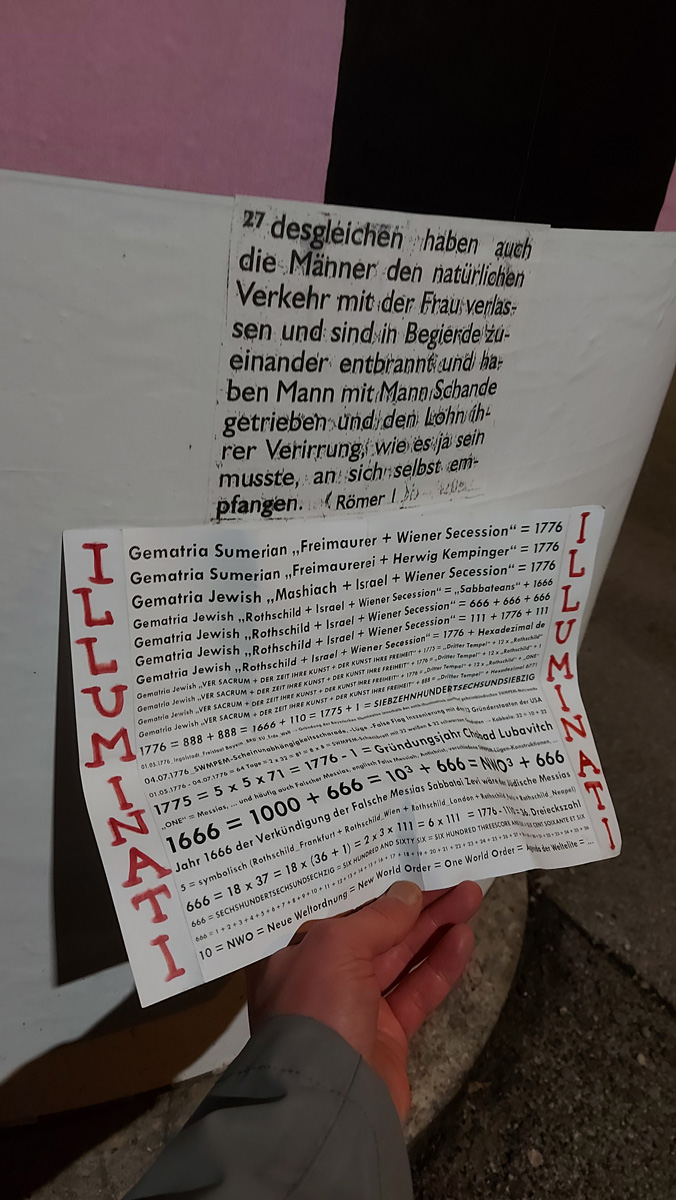 27 desgleichen haben auch
die Männer den natürlichen
Verkehr mit der Frau verlas-
sen und sind in Begierde zu-
einander entbrannt und ha-
ben Mann mit Mann Schande
getrieben und den Lohn ih-
rer Verirrung, wie es ja sein
musste, an sich selbst em-
pfangen. (Römer I
ILLUMINATI
Gematria Sumerian „Freimaurer + Wiener Secession“ = 1776
Gematria Sumerian „Freimaurerei + Herwig Kempinger“ = 1776
Gematria Jewish „Mashiach + Israel + Wiener Secession“ = 1776
Gematria Jewish „Rothschild + Israel + Wiener Secession“ = „Sabbateans“ + 1666
Gematria Jewish „Rothschild + Israel + Wiener Secession“ = 666 + 666 + 666
Gematria Jewish „Rothschild + Israel + Wiener Secession“ = 111 + 1776 + 111
Gematria Jewish „Rothschild + Israel + Wiener Secession“ = 1776 + Hexadezimal de
Gematria Jewish „VER SACRUM + DER ZEIT IHRE KUNST + DER KUNST IHRE FREIHEIT“ = 1775 = „Dritter Tempel“ + 12 x „Rothschild“
Gematria Jewish „VER SACRUM + DER ZEIT IHRE KUNST + DER KUNST IHRE FREIHEIT“
Gematria Jewish „VER SACRUM + DER ZEIT IHRE KUNST + DER KUNST IHRE FREIHEIT“
Gematria Jewish „VER SACRUM + DER ZEIT IHRE KUNST + DER KUNST IHRE FREIHEIT“
1776 = 888 + 888 = 1666 + 110 = 1775 + 1 = SIEBZEHNHUNDERTSECHSUNDSIEBZIG
01.05.1776
04.07.1776 SWMPEM-Scheinunabhängigkeitsscharade, -Lüge, -False Flag Inszenierung mit den Gründerstaaten der USA
01.05.1776 - 04.07.1776 = 64 Tage = 2 x 32 = 8 x 8 =
1775 = 5 x 5 x 71 = 1776 - 1 = Gründungsjahr Chabad Lubavitch
„ONE“ = Messias, ... und häufig auch Falscher Messias,
1666 = 1000 + 666 = 10³ + 666 = NWO³ + 666
Jahr 1666 der Verkündigung der Falsche Messias Sabbatai Zevi wäre der Jüdische Messias
5 = symbolisch (Rothschild_Frankfurt + Rothschild_Wien + Rothschild_London + Rothschild_Paris + Rothschild_Neapel)
666 = 18 x 37 = 18 x (36 + 1) = 2 x 3 x 111 = 6 x 111 = 1776 - 1110 = 36. Dreieckszahl
666 = SECHSHUNDERTSECHSUNDSECHZIG = SIX HUNDRED AND SIXTY SIX = SIX HUNDRED THREESCORE AND SIX = SIX CENT SOIXANTE ET SIX
666 = 1 + 2 + 3 + 4 + 5 + 6 + 7 + 8 + 9 + 10 + 11 + 12 + 13 + 14 + 15 + 16 + 17 + 18 + 19 + 20 + 21 + 22 + 23 + 24 + 25 + 26 + 27 + 28 + 29 + 30 + 31 + 32 + 33 + 34 + 35 + 36
10 = NWO = Neue Weltordnung = New World Order = One World Order = Agenda der Weltelite = ...
ILLUMINATI